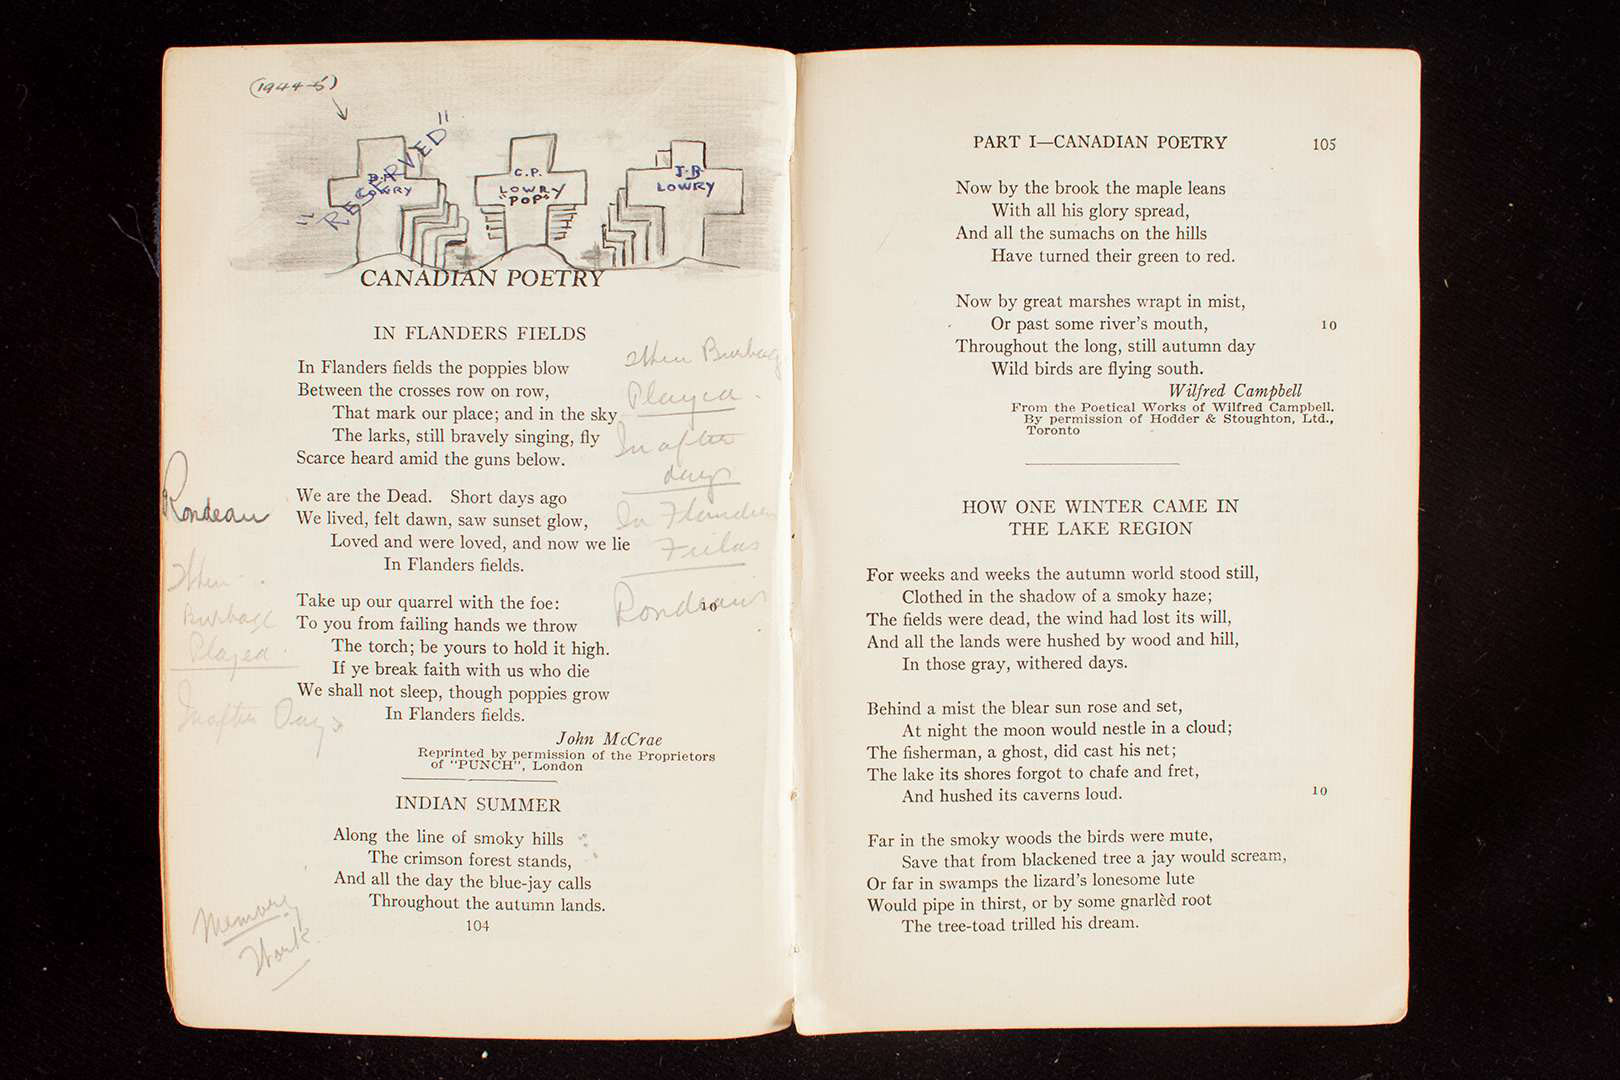 (1944-5)
"RESERVED"
LOWRY
C.P.
LOWRY
"POP"
J.B.
LOWRY
CANADIAN POETRY
IN FLANDERS FIELDS
In Flanders fields the poppies blow
Between the crosses row on row,
That mark our place; and in the sky
The larks, still bravely singing, fly
Scarce heard amid the guns below.
We are the Dead. Short days ago
We lived, felt dawn, saw sunset glow,
Loved and were loved, and now we lie
In Flanders fields.
Take up our quarrel with the foe: 10
To you from failing hands we throw
The torch; be yours to hold it high.
If ye break faith with us who die
We shall not sleep, though poppies grow
In Flanders fields.
John McCrae
Reprinted by permission of the Proprietors
of "PUNCH", London
When Burbage
Played
In after
days
In Flanders
Fields
Rondeau's
Rondeau
When
Burbage
Played
In after Days
INDIAN SUMMER
Along the line of smoky hills
The crimson forest stands,
And all the day the blue-jay calls
Throughout the autumn lands.
Memory
Work
104
PART I—CANADIAN POETRY 105
Now by the brook the maple leans
With all his glory spread,
And all the sumachs on the hills
Have turned their green to red.
Now by great marshes wrapt in mist,
Or past some river's mouth, 10
Throughout the long, still autumn day
Wild birds are flying south.
Wilfred Campbell
From the Poetical Works of Wilfred Campbell.
By permission of Hodder & Stoughton, Ltd.,
Toronto
HOW ONE WINTER CAME IN
THE LAKE REGION
For weeks and weeks the autumn world stood still,
Clothed in the shadow of a smoky haze;
The fields were dead, the wind had lost its will,
And all the lands were hushed by wood and hill,
In those gray, withered days.
Behind a mist the blear sun rose and set,
At night the moon would nestle in a cloud;
The fisherman, a ghost, did cast his net;
The lake its shores forgot to chafe and fret,
And hushed its caverns loud. 10
Far in the smoky woods the birds were mute,
Save that from blackened tree a jay would scream,
Or far in swamps the lizard's lonesome lute
Would pipe in thirst, or by some gnarlèd root
The tree-toad trilled his dream.